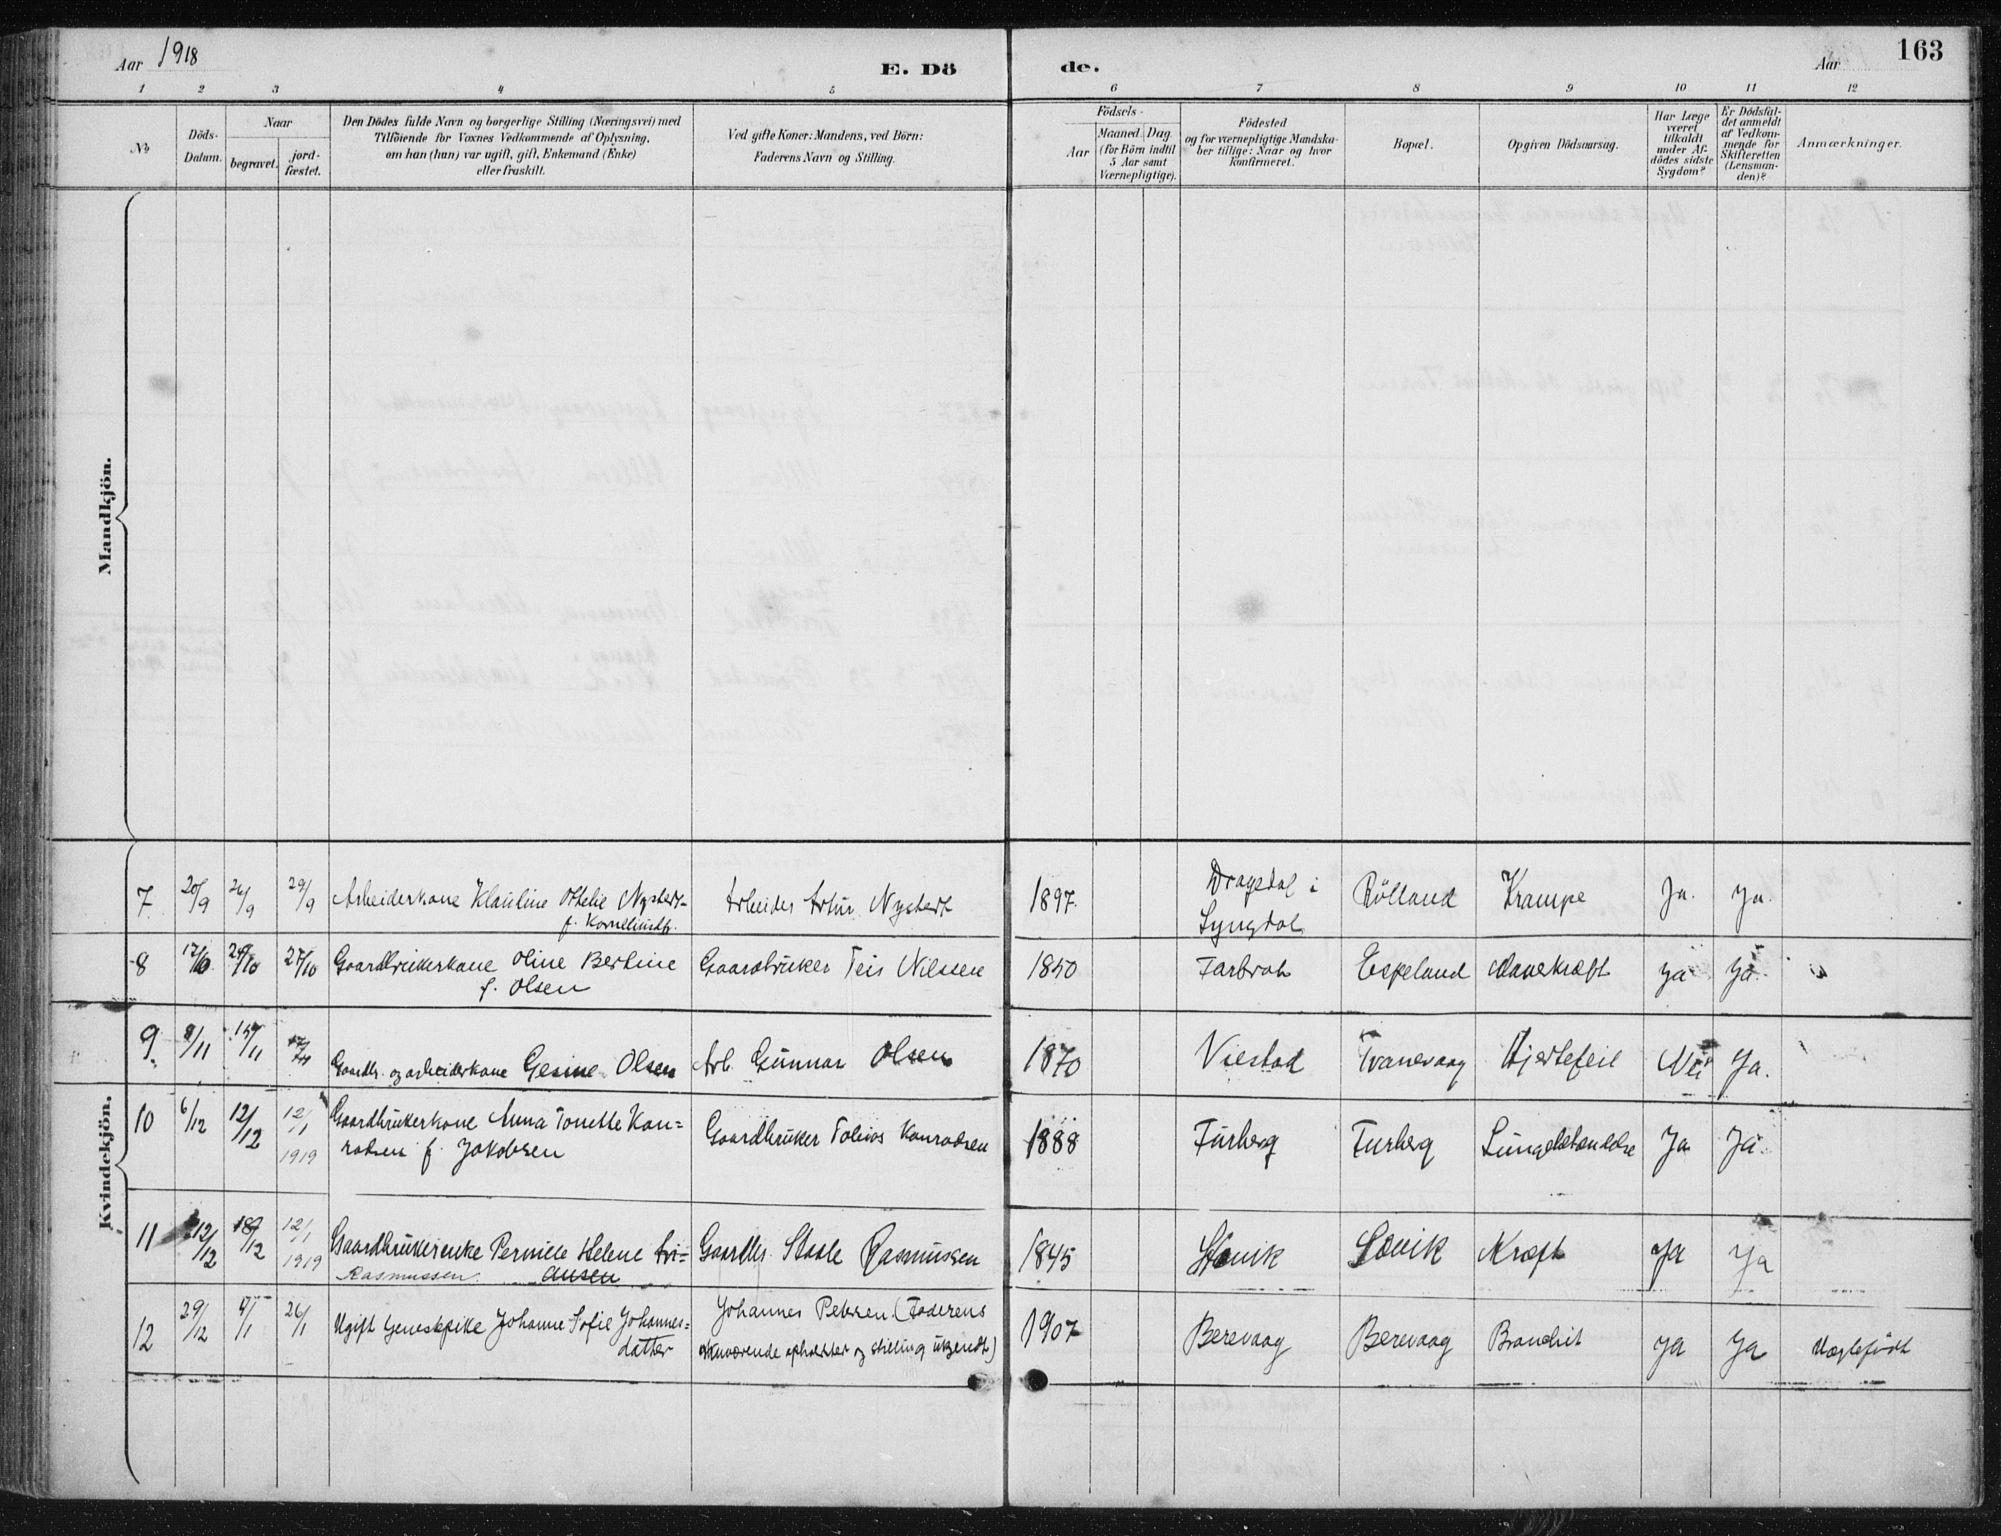 Aar 1918
E. Dö de.
Aar
163
1 2 3 4 5 6 7 8 9 10 11 12
No
Döds-
Datum.
Naar
begravet.
jord-
fæstet.
Den Dödes fulde Navn og borgerlige Stilling (Næringsvei) med
Tilföiende for Voxnes Vedkommende af Oplysning,
om han (hun) var ugift, gift, Enkemand (Enke)
eller fraskilt.
Ved gifte Koner: Mandens, ved Börn:
Faderens Navn og Stilling.
Födsels-
Aar
Maaned. Dag.
(for Börn indtil
5 Aar samt
Værnepligtige).
Födested
og for værnepligtige Mandska-
ber tillige: Naar og hvor
konfirmeret.
Bopæl.
Opgiven Dödsaarsag.
Har Læge
været
tilkaldt
under Af-
dödes sidste
Sygdom?
Er Dödsfal-
det anmeldt
af Vedkom-
mende for
Skifteretten
(Lensman-
den)?
Anmærkninger.
Mandkjön.
Kvindekjön.
7 20/9 26/9 29/9 Arbeiderkone Klauline Othelie Nystedt Arbeider Artur Nystedt 1897 Dragedal i Rölland Krampe Ja. Ja.
f. Lyngdal
8 24/10 27/10 Gaardbrukerkone Oline Bertine Gaardbruker Teis Nilssen 1850 Farbrot Espeland Mavekræft Ja Ja.
f. Olsen
9 8/11 15/11 Gaardbr. og arbeiderkone Gesine Olsen Arb. Gunnar Olsen 1870 Viestad Tranevaag Hjertefeil Nei Ja.
10 6/12 12/12 12/1 1919 Gaardbrukerkone Anna Tonette Kon= Gaardbruker Tobias Konradsen 1888 Furberg Furberg Lungebetændelse Ja Ja.
radsen f. Jakobsen
11 12/12 18/12 12/1 1919 Gaardbrukerenke Pernille Helene Gaardbr. Staale Rasmussen 1845 Lövik Kræft Ja Ja
Rasmussen
12 29/12 4/1 26/1 Ugift Johanne Sofie Johannes= Johannes Petersen (Faderens 1907 Berevaag Berevaag Ja Ja Uægtefödt
datter nuværende opholdsted og stilling ukjendt)